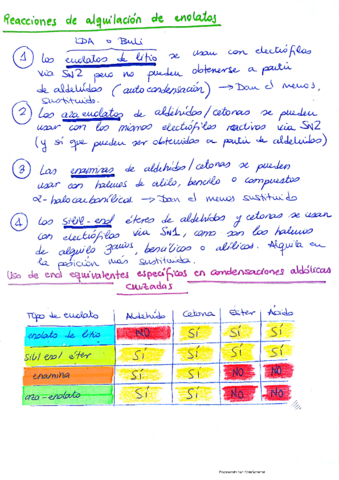 Reacciones de alquilación de enolatos
LDA o BuLi
1 Los enolatos de litio se usan con electrófilos
vía SN2 pero no pueden obtenerse a partir
de aldehídos (autocondensación) → Dan el menos
sustituido.
2 Los azaenolatos de aldehídos/cetonas se pueden
usar con los mismos electrófilos reactivos vía SN2
(y sí que pueden ser obtenidos a partir de aldehídos)
3 Las enaminas de aldehídos/cetonas se pueden
usar con haluros de alilo, bencilo o compuestos
α-halocarbonílicos → Dan el menos sustituido
4 Los silil-enol éteres de aldehídos y cetonas se usan
con electrófilos vía SN1, como son los haluros
de alquilo 3arios, bencílicos o alílicos. Alquila en
la posición más sustituida.
Uso de enol equivalentes específicos en condensaciones aldólicas
cruzadas
Tipo de enolato Aldehído Cetona Éster Ácido
enolato de litio NO SÍ SÍ SÍ
silil enol éter SÍ SÍ SÍ SÍ
enamina SÍ SÍ NO NO
aza-enolato SÍ SÍ NO NO